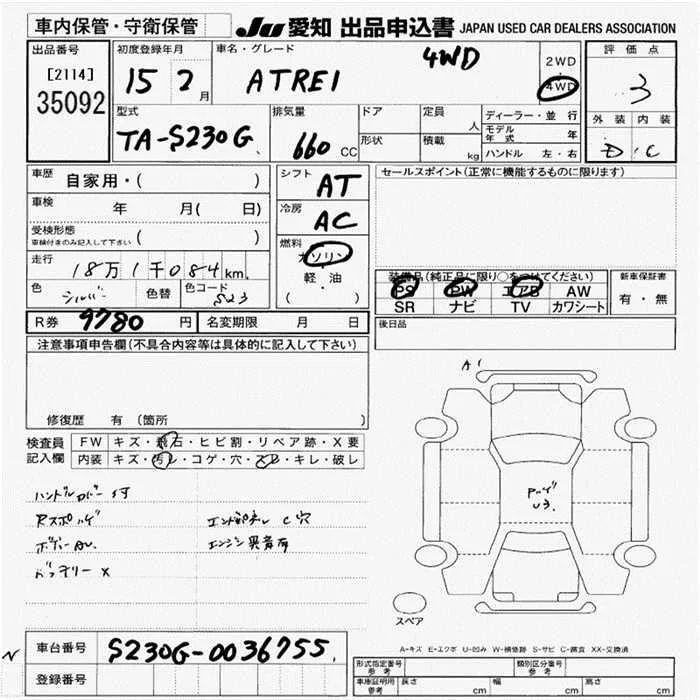 車内保管・守衛保管
JU 愛知 出品申込書 JAPAN USED CAR DEALERS ASSOCIATION
出品番号
[2114]
35092
初度登録年月
15 2月
車名・グレード
ATREI
4WD
2WD
4WD
評価点
3
外装 内装
D C
型式
TA-S230G
排気量
660 CC
ドア
形状
定員 人
積載 kg
ディーラー・並行
モデル年式 年
ハンドル 左・右
車歴 自家用・( )
車検 年 月( 日)
受検形態 ( )
車検付きのみ記入して下さい
走行 18万1千084km.
色 シルバー 色替 色コード S23
R券 9780 円 名変期限 月 日
シフト AT
冷房 AC
燃料
ガソリン
軽・油
( ・ )
セールスポイント(正常に機能するものに限ります)
装備品(純正品に限り○をつけてください)
PS PW エアB AW
SR ナビ TV カワシート
新車保証書
有・無
後日品
注意事項申告欄(不具合内容等は具体的に記入して下さい)
修復歴 有 (箇所 )
検査員記入欄
FW キズ・飛石・ヒビ割・リペア跡・X要
内装 キズ・汚レ・コゲ・穴・スレ・キレ・破レ
ハンドルカバー付
エンジン異音有
バッテリー X
A1
U3.
スペア
A-キズ E-エクボ U-凹み W-補修跡 S-サビ C-腐食 XX-交換済
車台番号 S230G-0036755.
登録番号
形式指定番号 参考
類別区分番号 参考
車庫証明用 参考 長さ cm 幅 cm 高さ cm